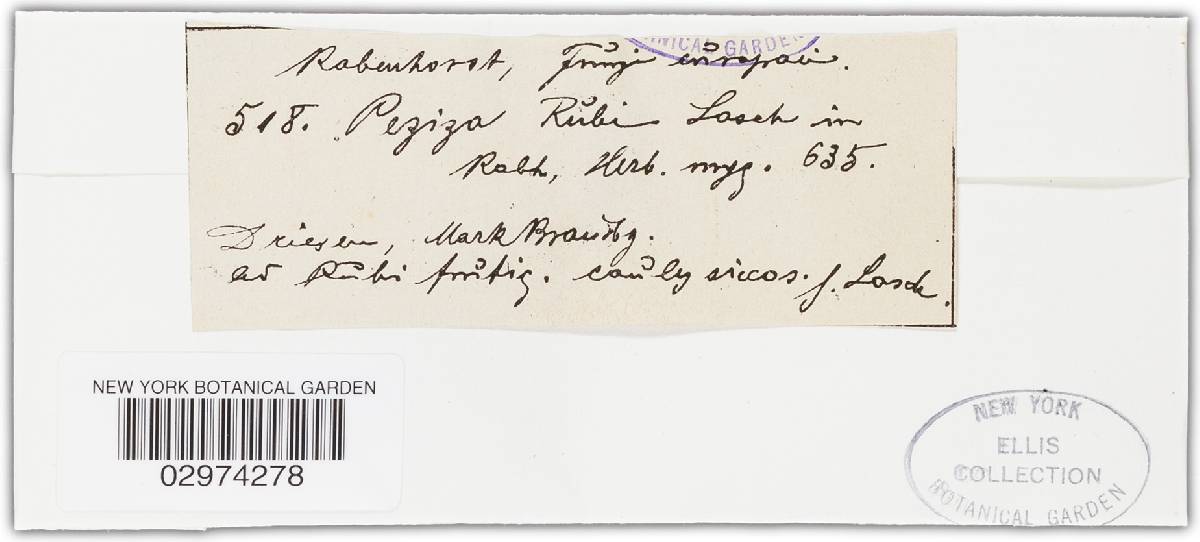 NICAL GARDEN
Rabenhorst, Fŭngi eŭropaei.
518. Peziza Rŭbi Lasch in
Rabh, Herb. myc. 635.
Driesen, Mark Brandbg.
ad Rŭbi frŭtic. caŭles siccos. f. Lasch.
NEW YORK BOTANICAL GARDEN
02974278
NEW YORK
ELLIS
COLLECTION
BOTANICAL GARDEN